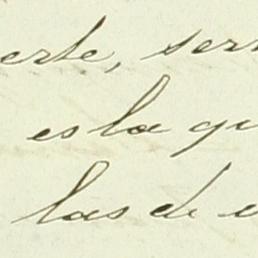 erte, ser
es la qu
las de